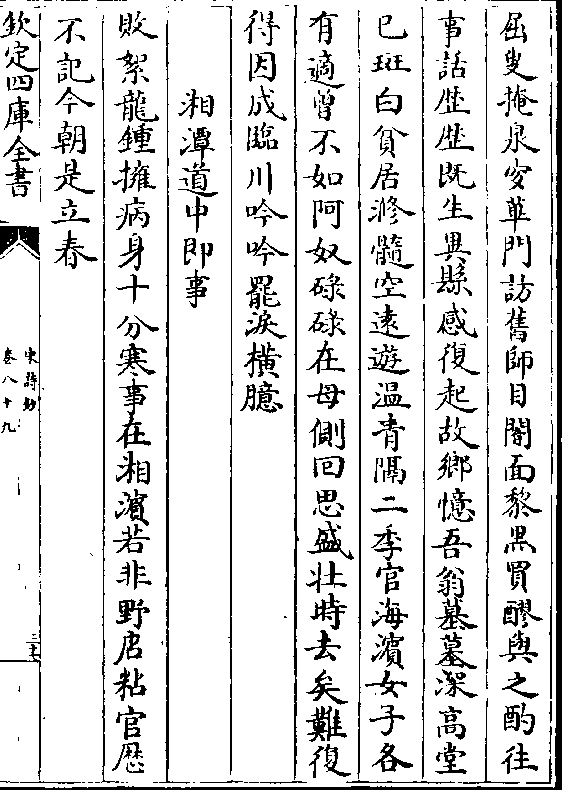 屈叟掩泉穸蓽門訪舊師目闇面黎黒買醪與之酌往
事話歴歴既生異縣感復起故鄉憶吾翁墓墓深高堂
已斑白貧居滫髓空遠遊温凊隔二季官海濱女子各
有適曽不如阿奴碌碌在母側回思盛壯時去矣難復
得因成臨川吟吟罷淚横臆
湘潭道中即事
敗絮龍鍾擁病身十分寒事在湘濱若非野店粘官厯
不記今朝是立春
欽定四庫全書
宋詩鈔
卷八十九